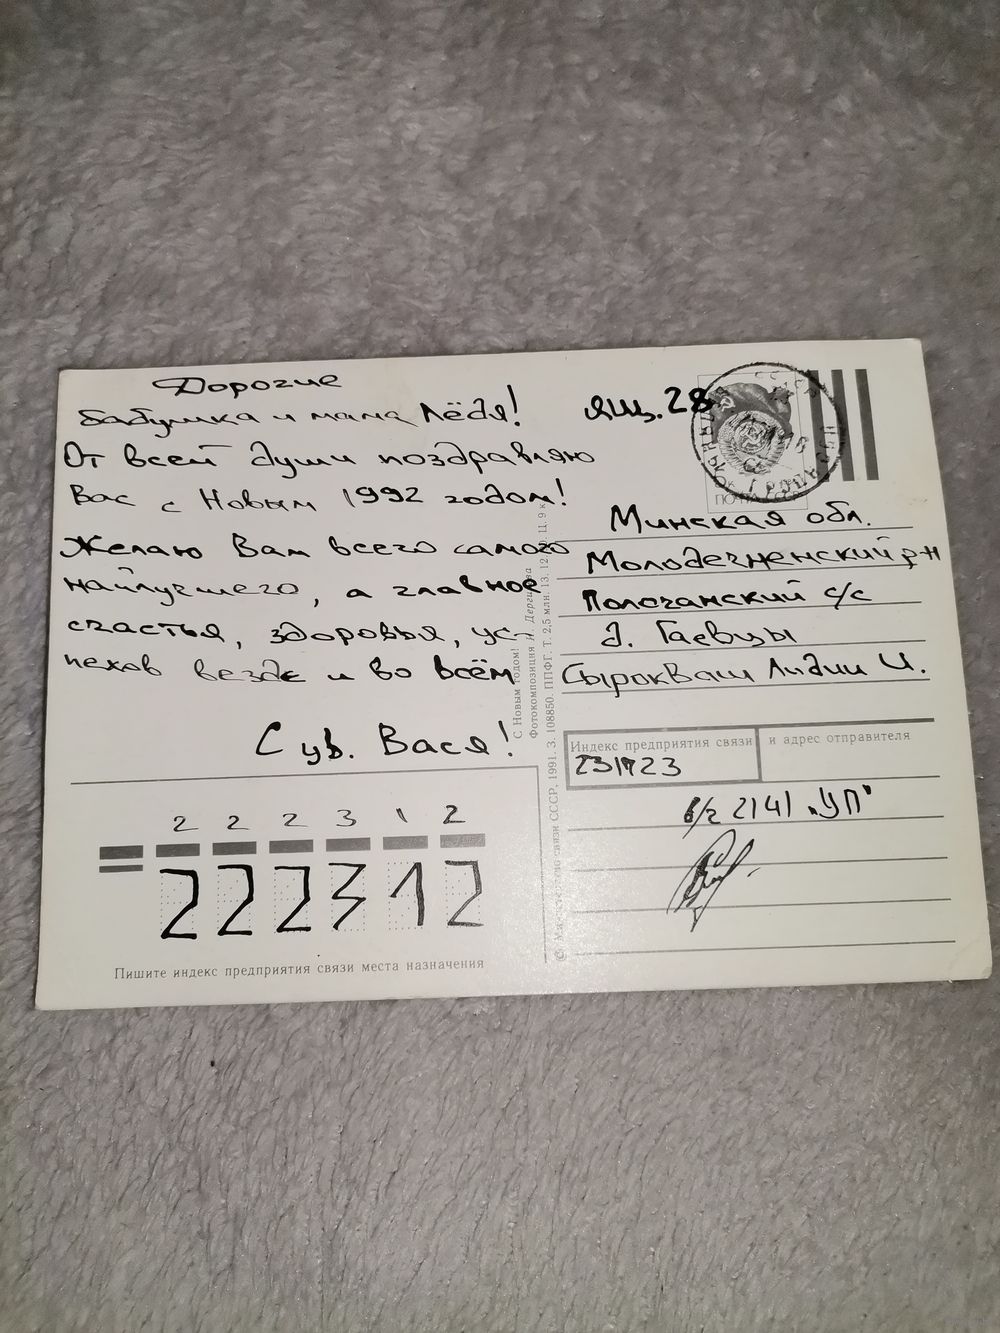 Дорогие
бабушка и мама Лёдя!
От всей души поздравляю
Вас с Новым 1992 годом!
Желаю Вам всего самого
найлучшего, а главное
счастья, здоровья, ус-
пехов везде и во всём
С ув. Вася!
2 2 2 3 1 2
222312
Пишите индекс предприятия связи места назначения
С Новым годом!
Фотокомпозиция И. Дергилёва
© Министерство связи СССР, 1991. З. 108850. ППФГ. Т. 2,5 млн. 13. 12. Ц. 9 к.
ящ. 28
ПОЧТА СССР
Минская обл.
Молодечненский р-н
Полочанский с/с
д. Гаевцы
Сыроквaш Лидии И.
Индекс предприятия связи и адрес отправителя
231723
в/ч 2141 "УП"